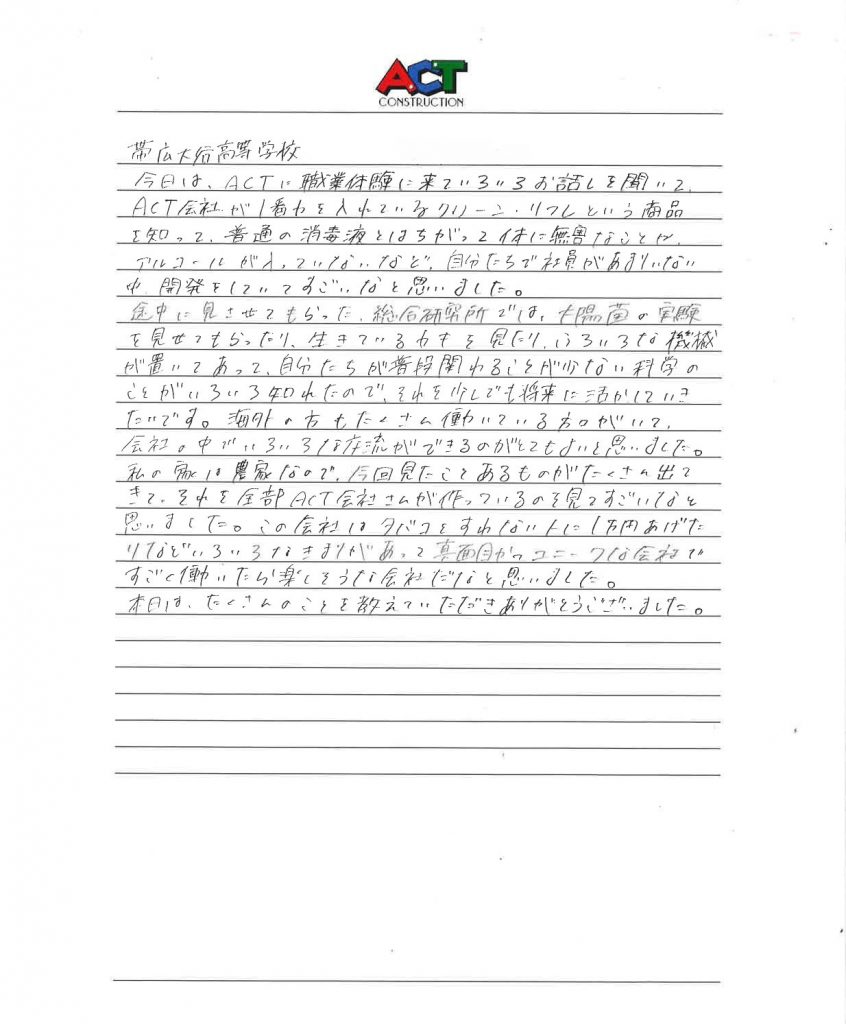 ACT
CONSTRUCTION
帯広大谷高等学校
今日は、ACTに職業体験に来ていろいろお話しを聞いて、
ACT会社が1番力を入れているクリーン・リフレという商品
を知って、普通の消毒液とはちがって体に無害なことや、
アルコールが入っていないなど、自分たちで社員があまりいない
中、開発をしていてすごいなと思いました。
途中に見させてもらった、総合研究所では、大腸菌の実験
を見せてもらったり、生きているカキを見たり、いろいろな機械
が置いてあって、自分たちが普段関わることが少ない科学の
ことがいろいろ知れたので、それを少しでも将来に活かしていき
たいです。海外の方もたくさん働いている方々がいて、
会社の中でいろいろな交流ができるのがとてもよいと思いました。
私の家は農家なので、今回見たことあるものがたくさん出て
きて、それを全部ACT会社さんが作っているのを見てすごいなと
思いました。この会社はタバコをすわない人に1万円あげた
りなどいろいろなきまりがあって真面目かつユニークな会社で
すごく働いたら楽しそうな会社だなと思いました。
本日は、たくさんのことを教えていただきありがとうございました。